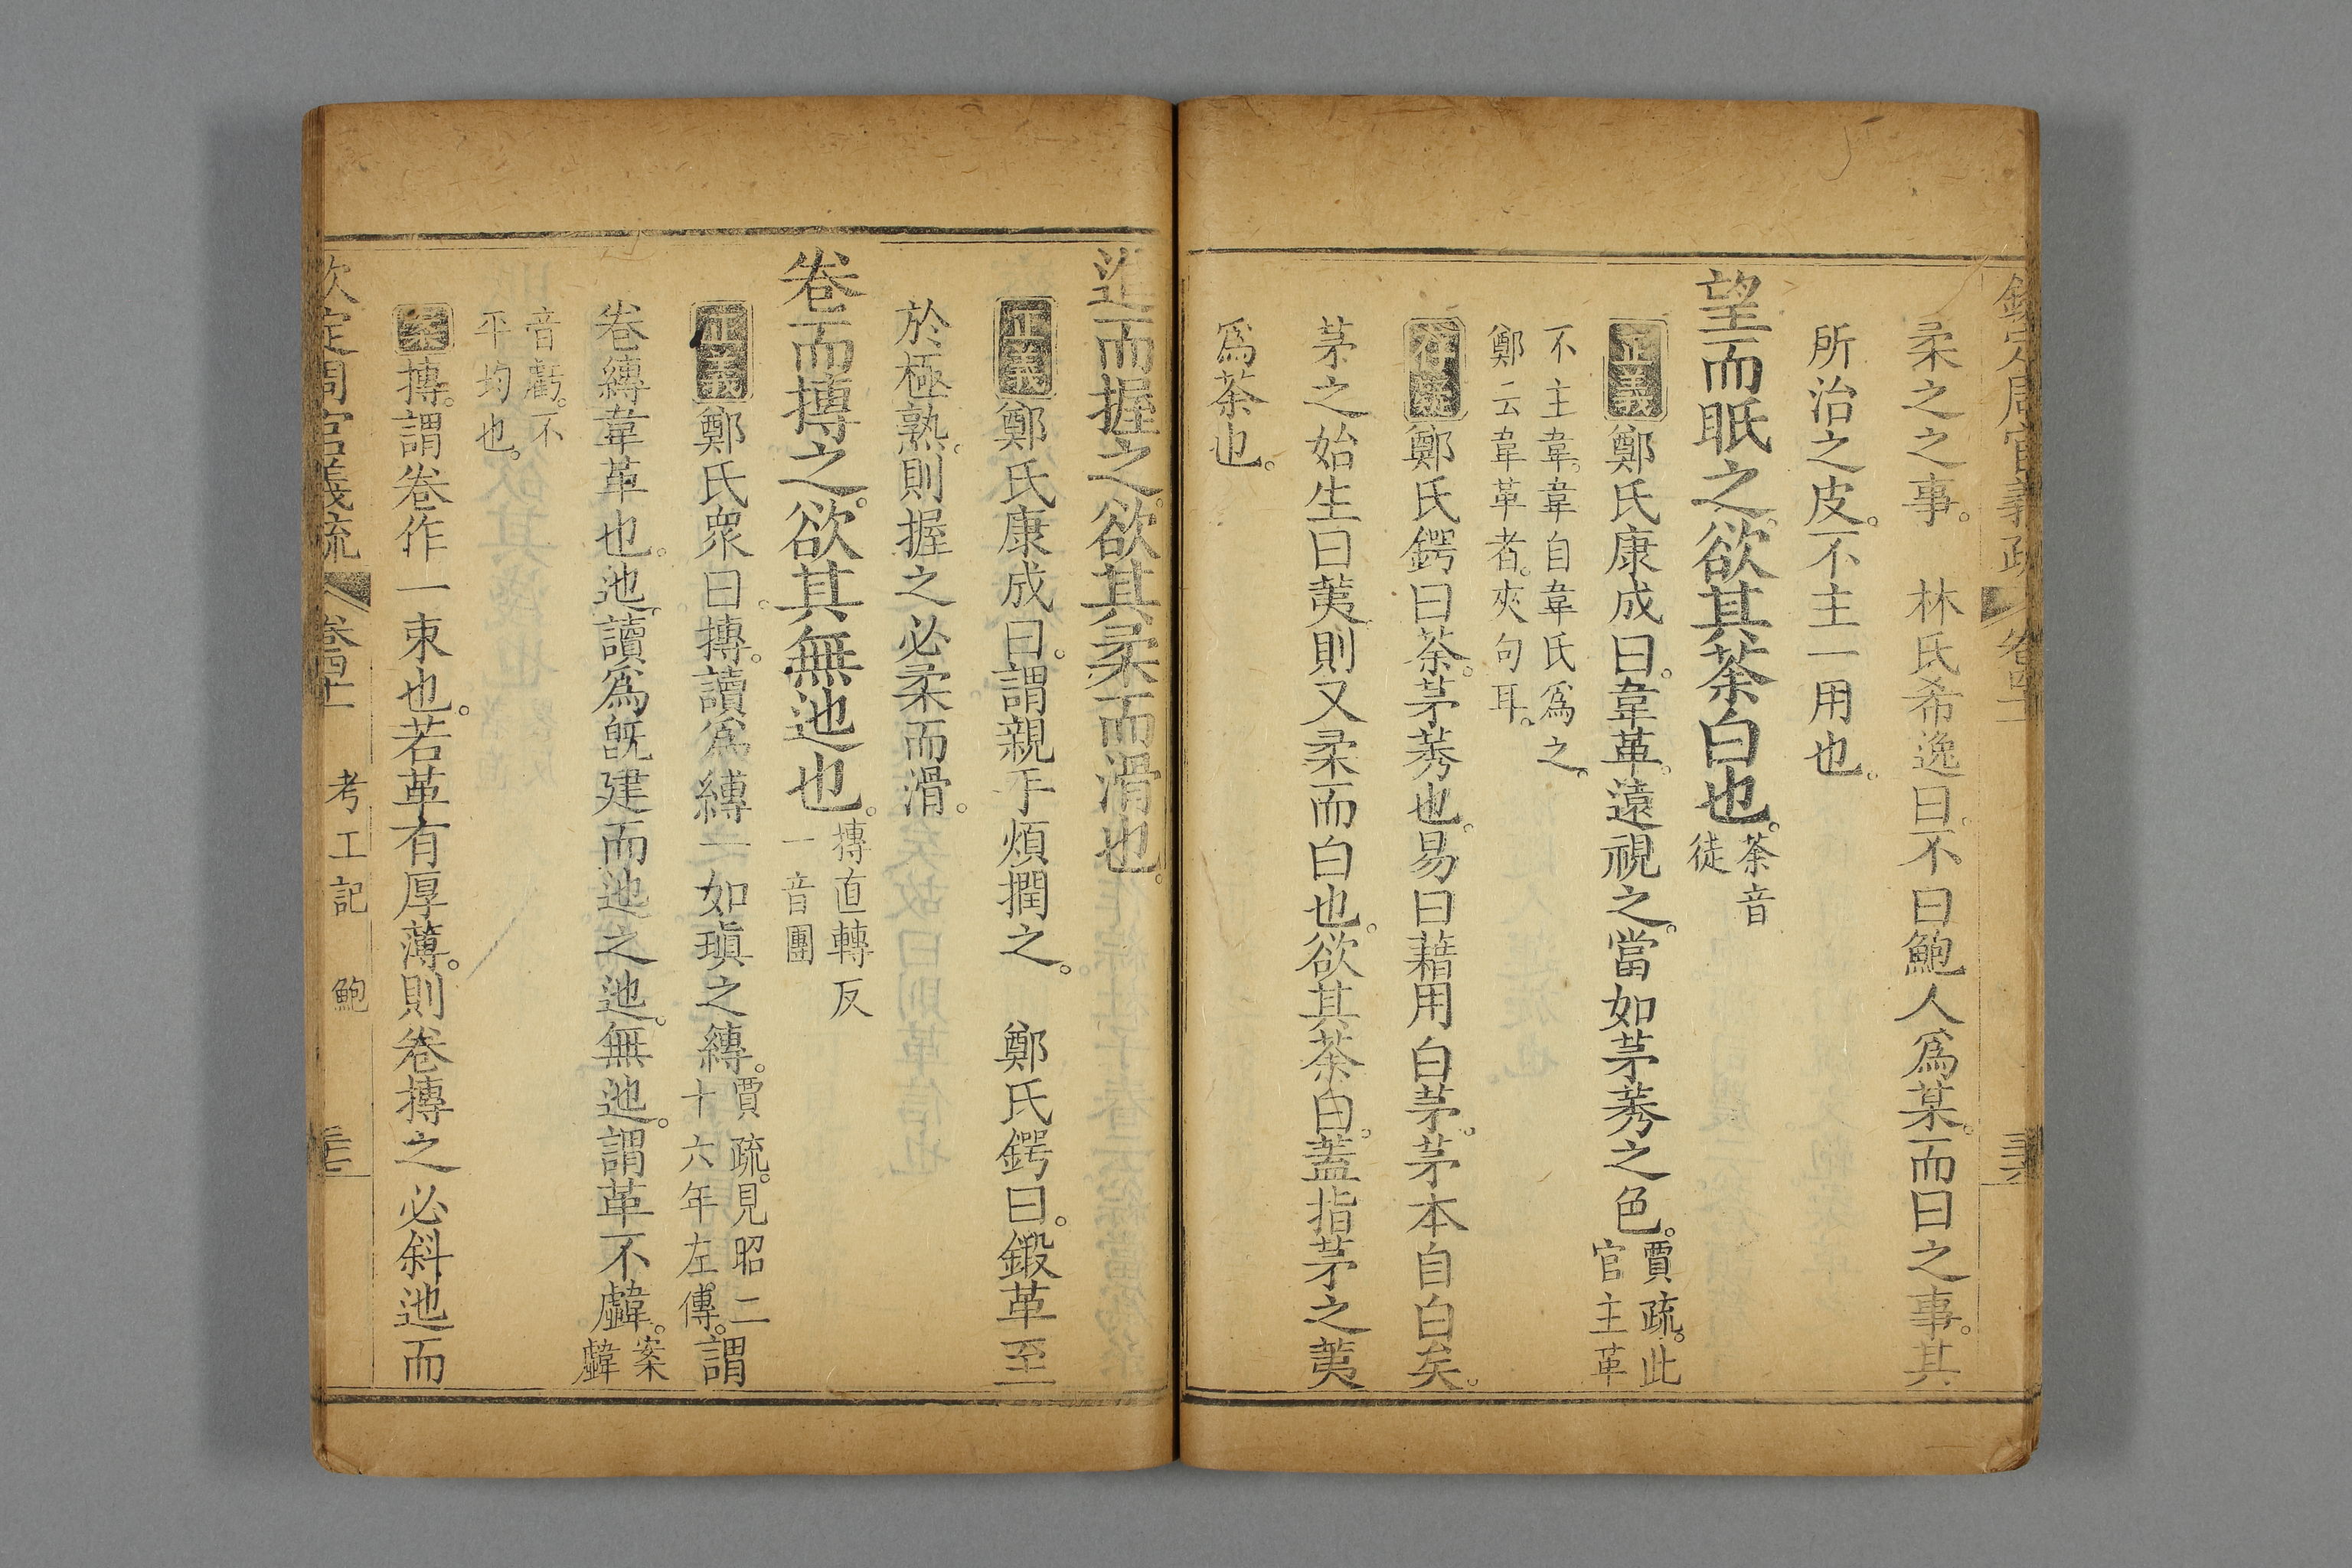 柔之之事。 林氏希逸曰。不曰鮑人爲某。而曰之事。其
所治之皮。不主一用也。
望而眂之。欲其荼白也。荼音徒
正義鄭氏康成曰。韋革。遠視之。當如茅莠之色。賈疏。此官主革
不主韋。韋自韋氏爲之。鄭云韋革者。夾句耳。
存疑鄭氏鍔曰荼。茅莠也。易曰藉用白茅。茅本自白矣。
茅之始生曰荑。則又柔而白也。欲其荼白。蓋指茅之荑
爲荼也。
進而握之。欲其柔而滑也。
正義鄭氏康成曰。謂親手煩撋之。 鄭氏鍔曰。鍛革至
於極熟。則握之必柔而滑。
卷而摶之。欲其無迆也。摶直轉反一音團
正義鄭氏衆曰。摶。讀爲縳一如瑱之縳。賈疏。見昭二十六年左傳。謂
卷縳韋革也。迆。讀爲旣建而迆之迆。無迆。謂革不䖒。案䖒
音虧。不平均也。
案摶。謂卷作一束也。若革有厚薄。則卷摶之必斜迆而
欽定周官義疏 卷四十 考工記 鮑